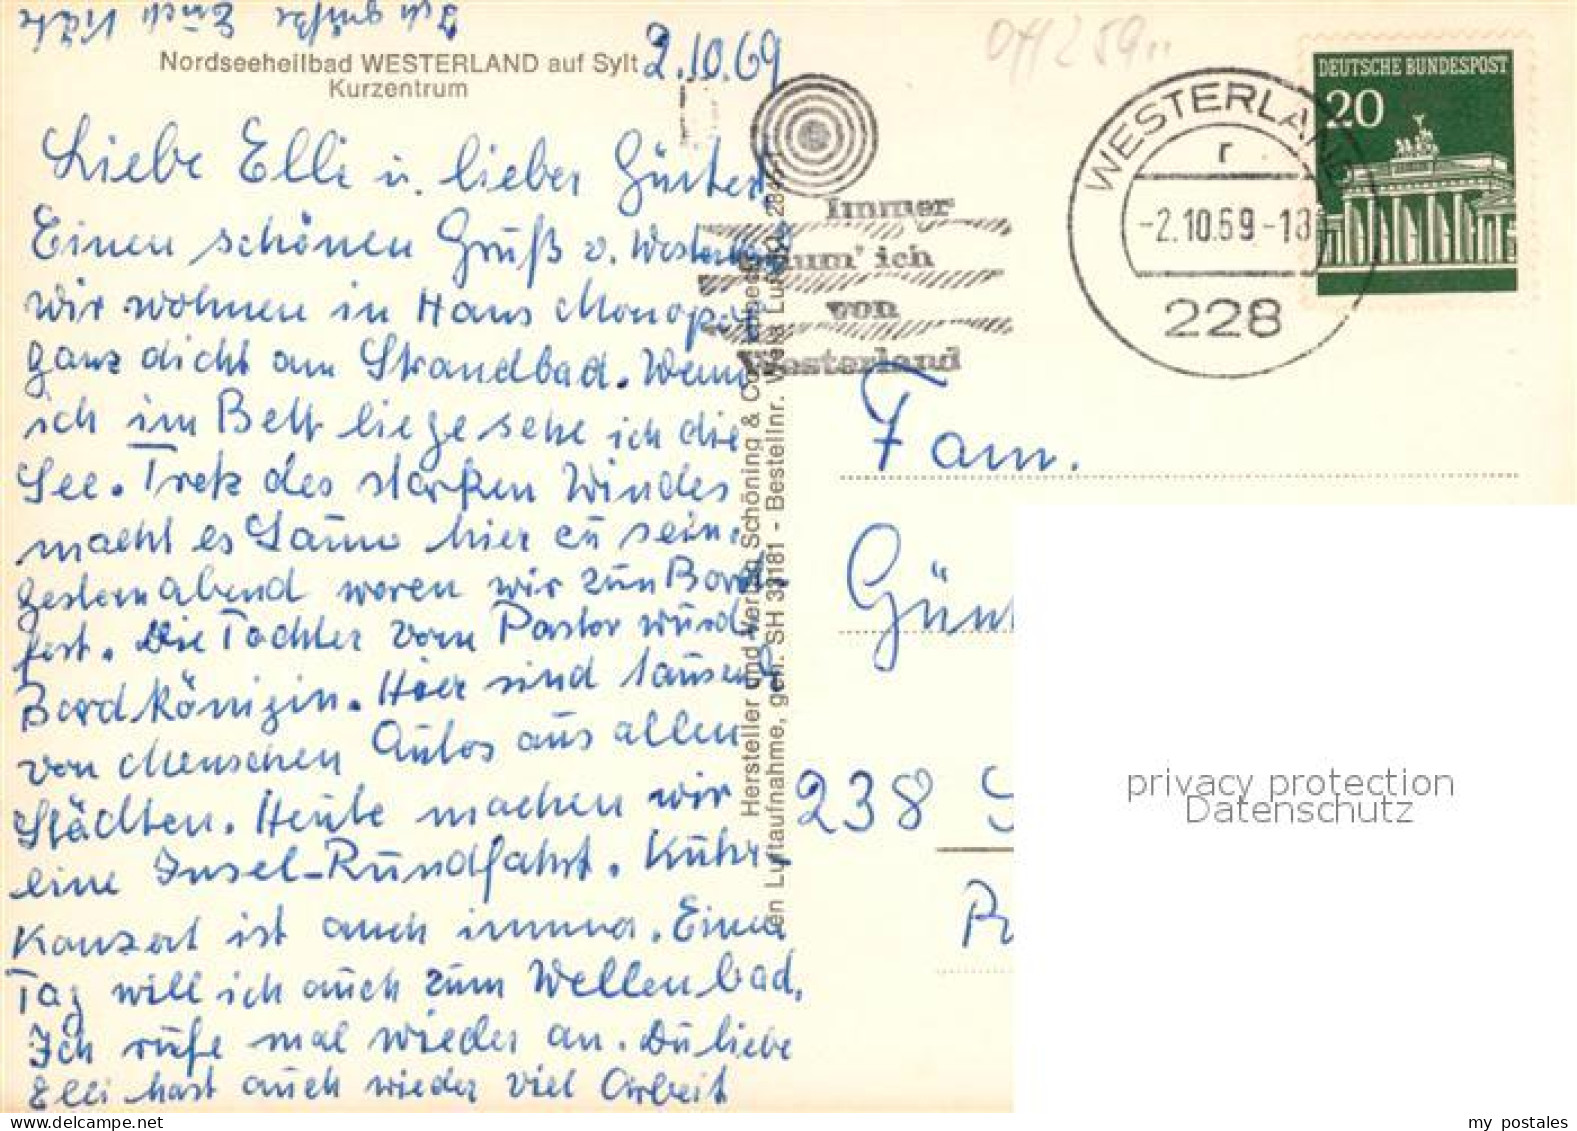 Ich grüße Euch Käte
Nordseeheilbad WESTERLAND auf Sylt
Kurzentrum
2.10.69
Liebe Elli u. lieber Günter,
Einen schönen Gruß v. Westerland
Wir wohnen in Haus Monopol
ganz dicht am Strandbad. Wenn
ich im Bett liege sehe ich die
See. Trotz des starken Windes
macht es Laune hier zu sein.
Gestern abend waren wir zum Bord-
fest. Die Tochter vom Pastor wurde
Bordkönigin. Hier sind tausend
von Menschen Autos aus allen
Städten. Heute machen wir
eine Insel-Rundfahrt. Kuhr-
Konzert ist auch immer. Einen
Tag will ich auch zum Wellenbad,
Ich rufe mal wieder an. Du liebe
Elli hast auch wieder viel Arbeit
Hersteller und Verlag Schöning & Co
Luftaufnahme, gen. SH 33181 - Bestellnr. Wela Lu
immer
träum' ich
von
Westerland
WESTERLAND
r
-2.10.69-18
228
DEUTSCHE BUNDESPOST
20
Fam.
Günt
238 S
privacy protection
Datenschutz
my postales